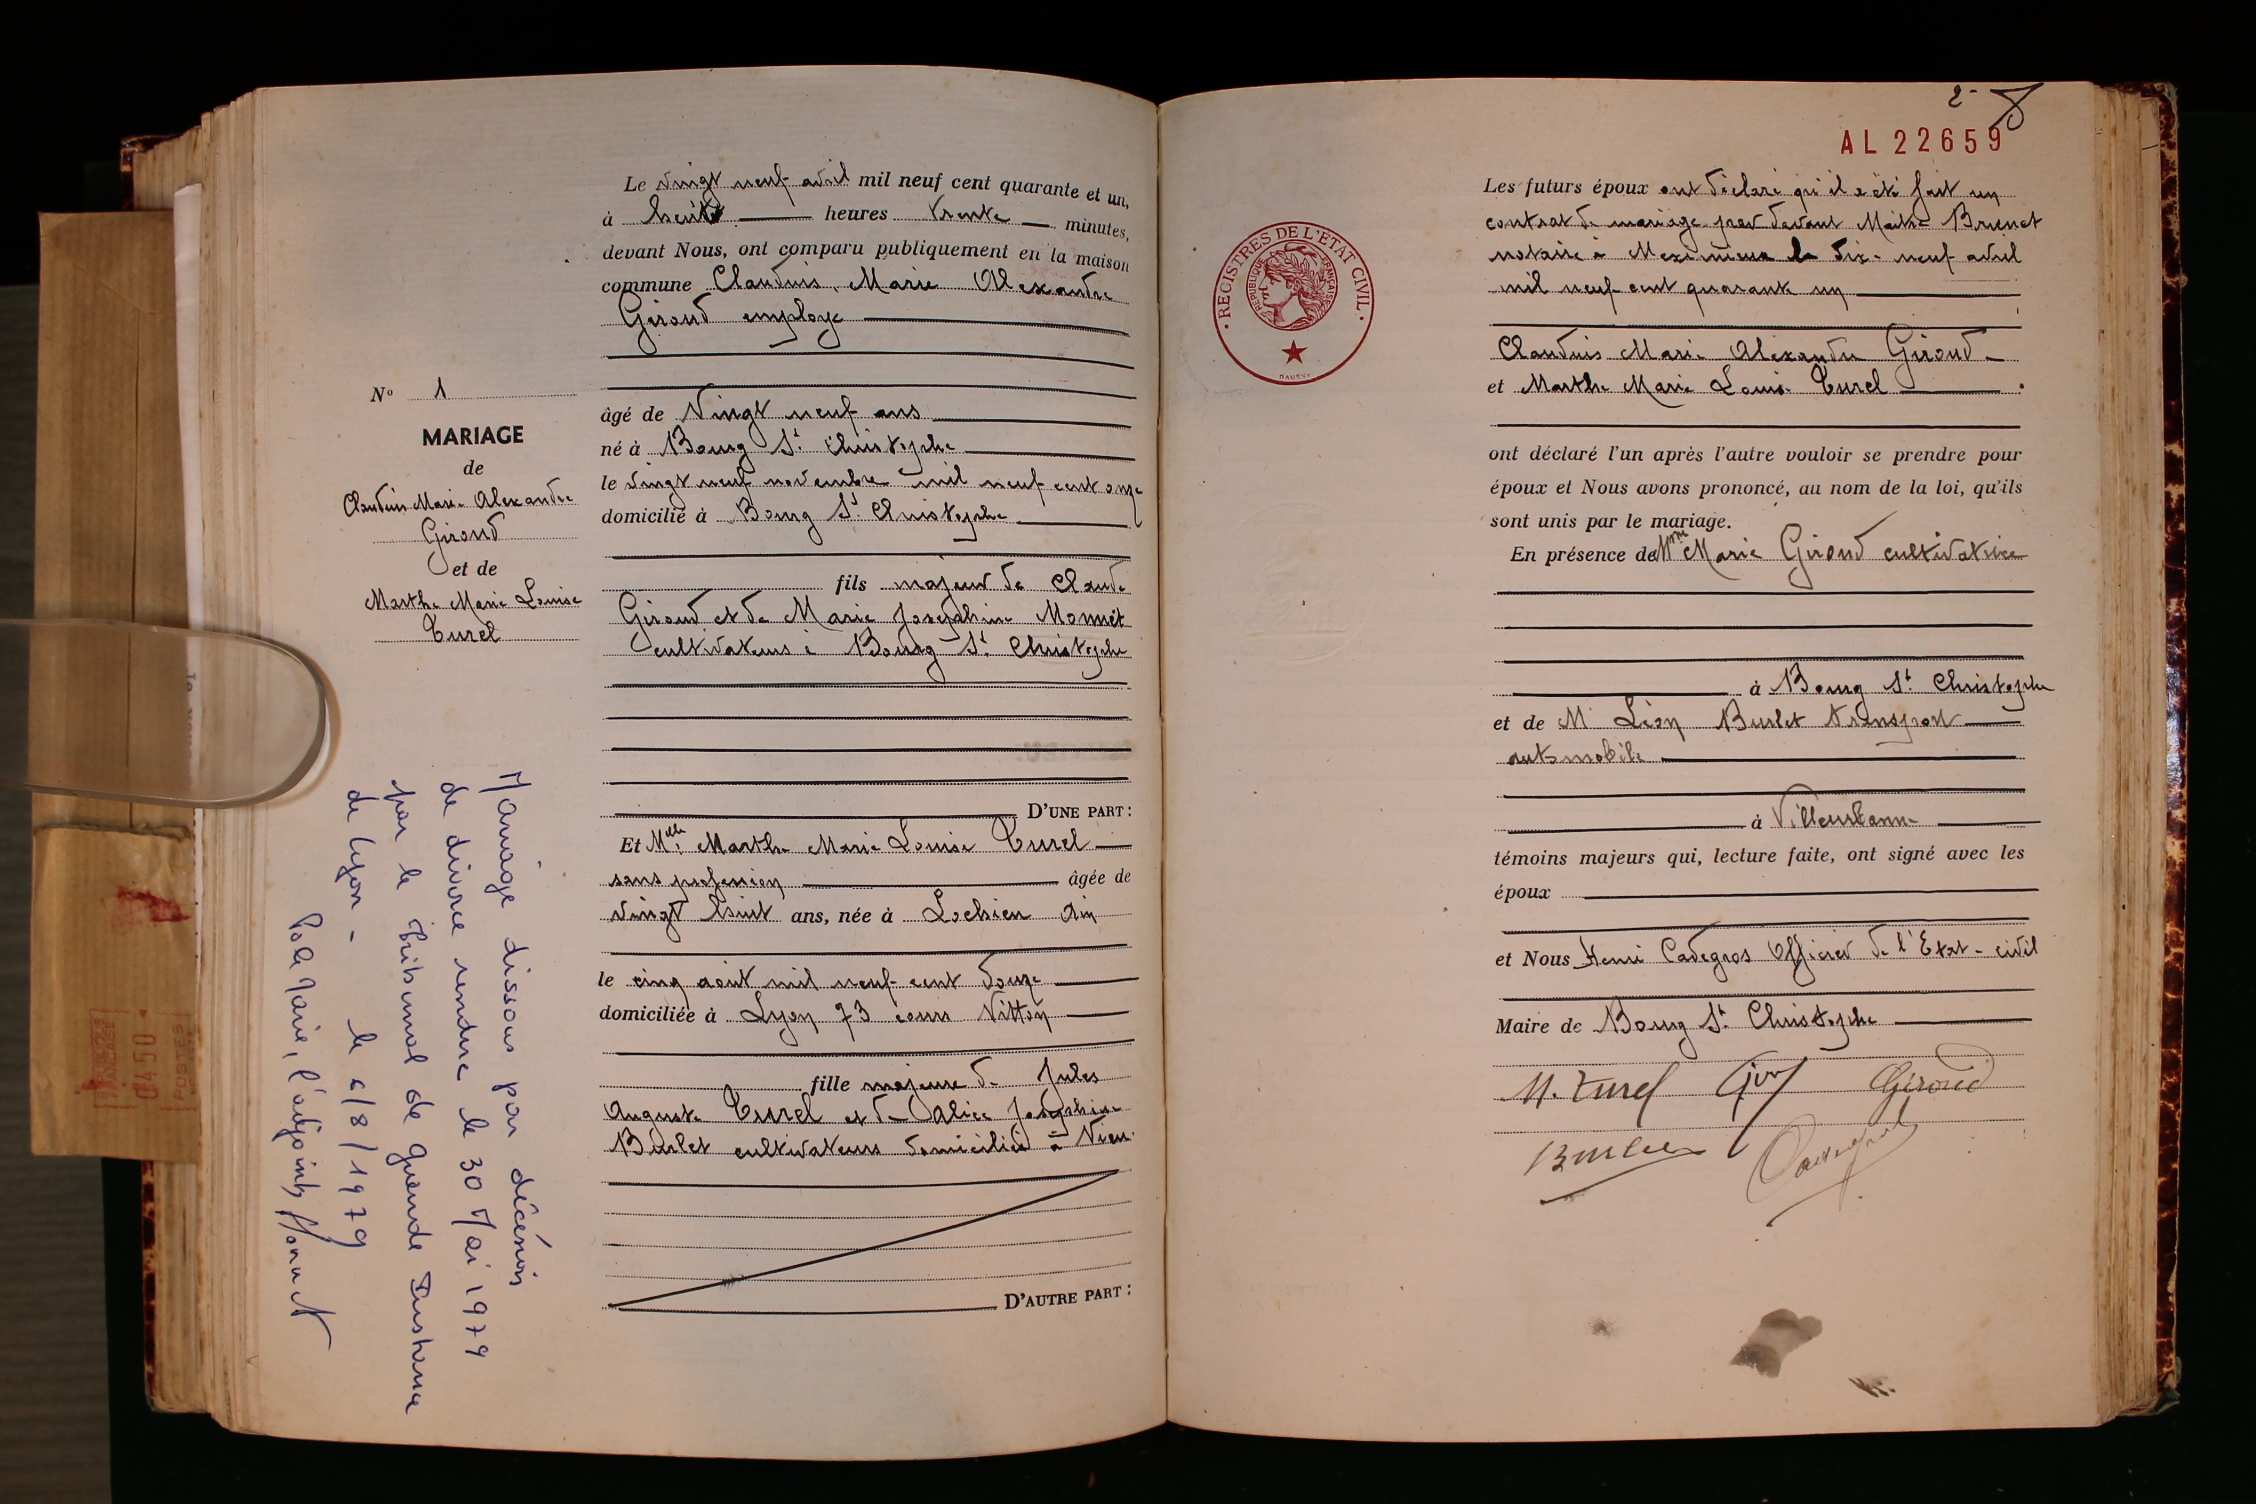 Le vingt neuf avril mil neuf cent quarante et un,
à huit heures trente minutes,
devant Nous, ont comparu publiquement en la maison
commune Claudius Marie Alexandre
Giroud employé
N° 1
MARIAGE
de
Claudius Marie Alexandre
Giroud
et de
Marthe Marie Louise
Turel
âgé de Vingt neuf ans
né à Bourg St Christophe
le vingt neuf novembre mil neuf cent onze
domicilié à Bourg St Christophe
fils majeur de Claude
Giroud et de Marie Joséphine Monnet
cultivateurs à Bourg St Christophe
D'UNE PART :
Et Melle Marthe Marie Louise Turel
sans profession âgée de
vingt huit ans, née à Lochieu Ain
le cinq août mil neuf cent douze
domiciliée à Lyon 73 cours Vitton
fille majeure de Jules
Auguste Turel et de Alice Joséphine
Burlet cultivateurs domiciliés à Vieu
D'AUTRE PART :
Mariage dissous par décision
de divorce rendue le 30 Mai 1979
par le tribunal de Grande Instance
de Lyon - le /8/1979
Po le Maire, l'adjoint,
2
AL 22659
REGISTRES DE L'ÉTAT CIVIL
RÉPUBLIQUE FRANÇAISE
Les futurs époux ont déclaré qu'il a été fait un
contrat de mariage par devant Maître Brunet
notaire à Meximieux le dix-neuf avril
mil neuf cent quarante un
Claudius Marie Alexandre Giroud
et Marthe Marie Louise Turel
ont déclaré l'un après l'autre vouloir se prendre pour
époux et Nous avons prononcé, au nom de la loi, qu'ils
sont unis par le mariage.
En présence de Mme Marie Giroud cultivatrice
à Bourg St Christophe
et de M Léon Burlet transport
automobile
à Villeurbanne
témoins majeurs qui, lecture faite, ont signé avec les
époux
et Nous Henri Cadegros Officier de l'Etat-civil
Maire de Bourg St Christophe
M. Turel Giroud
Burlet